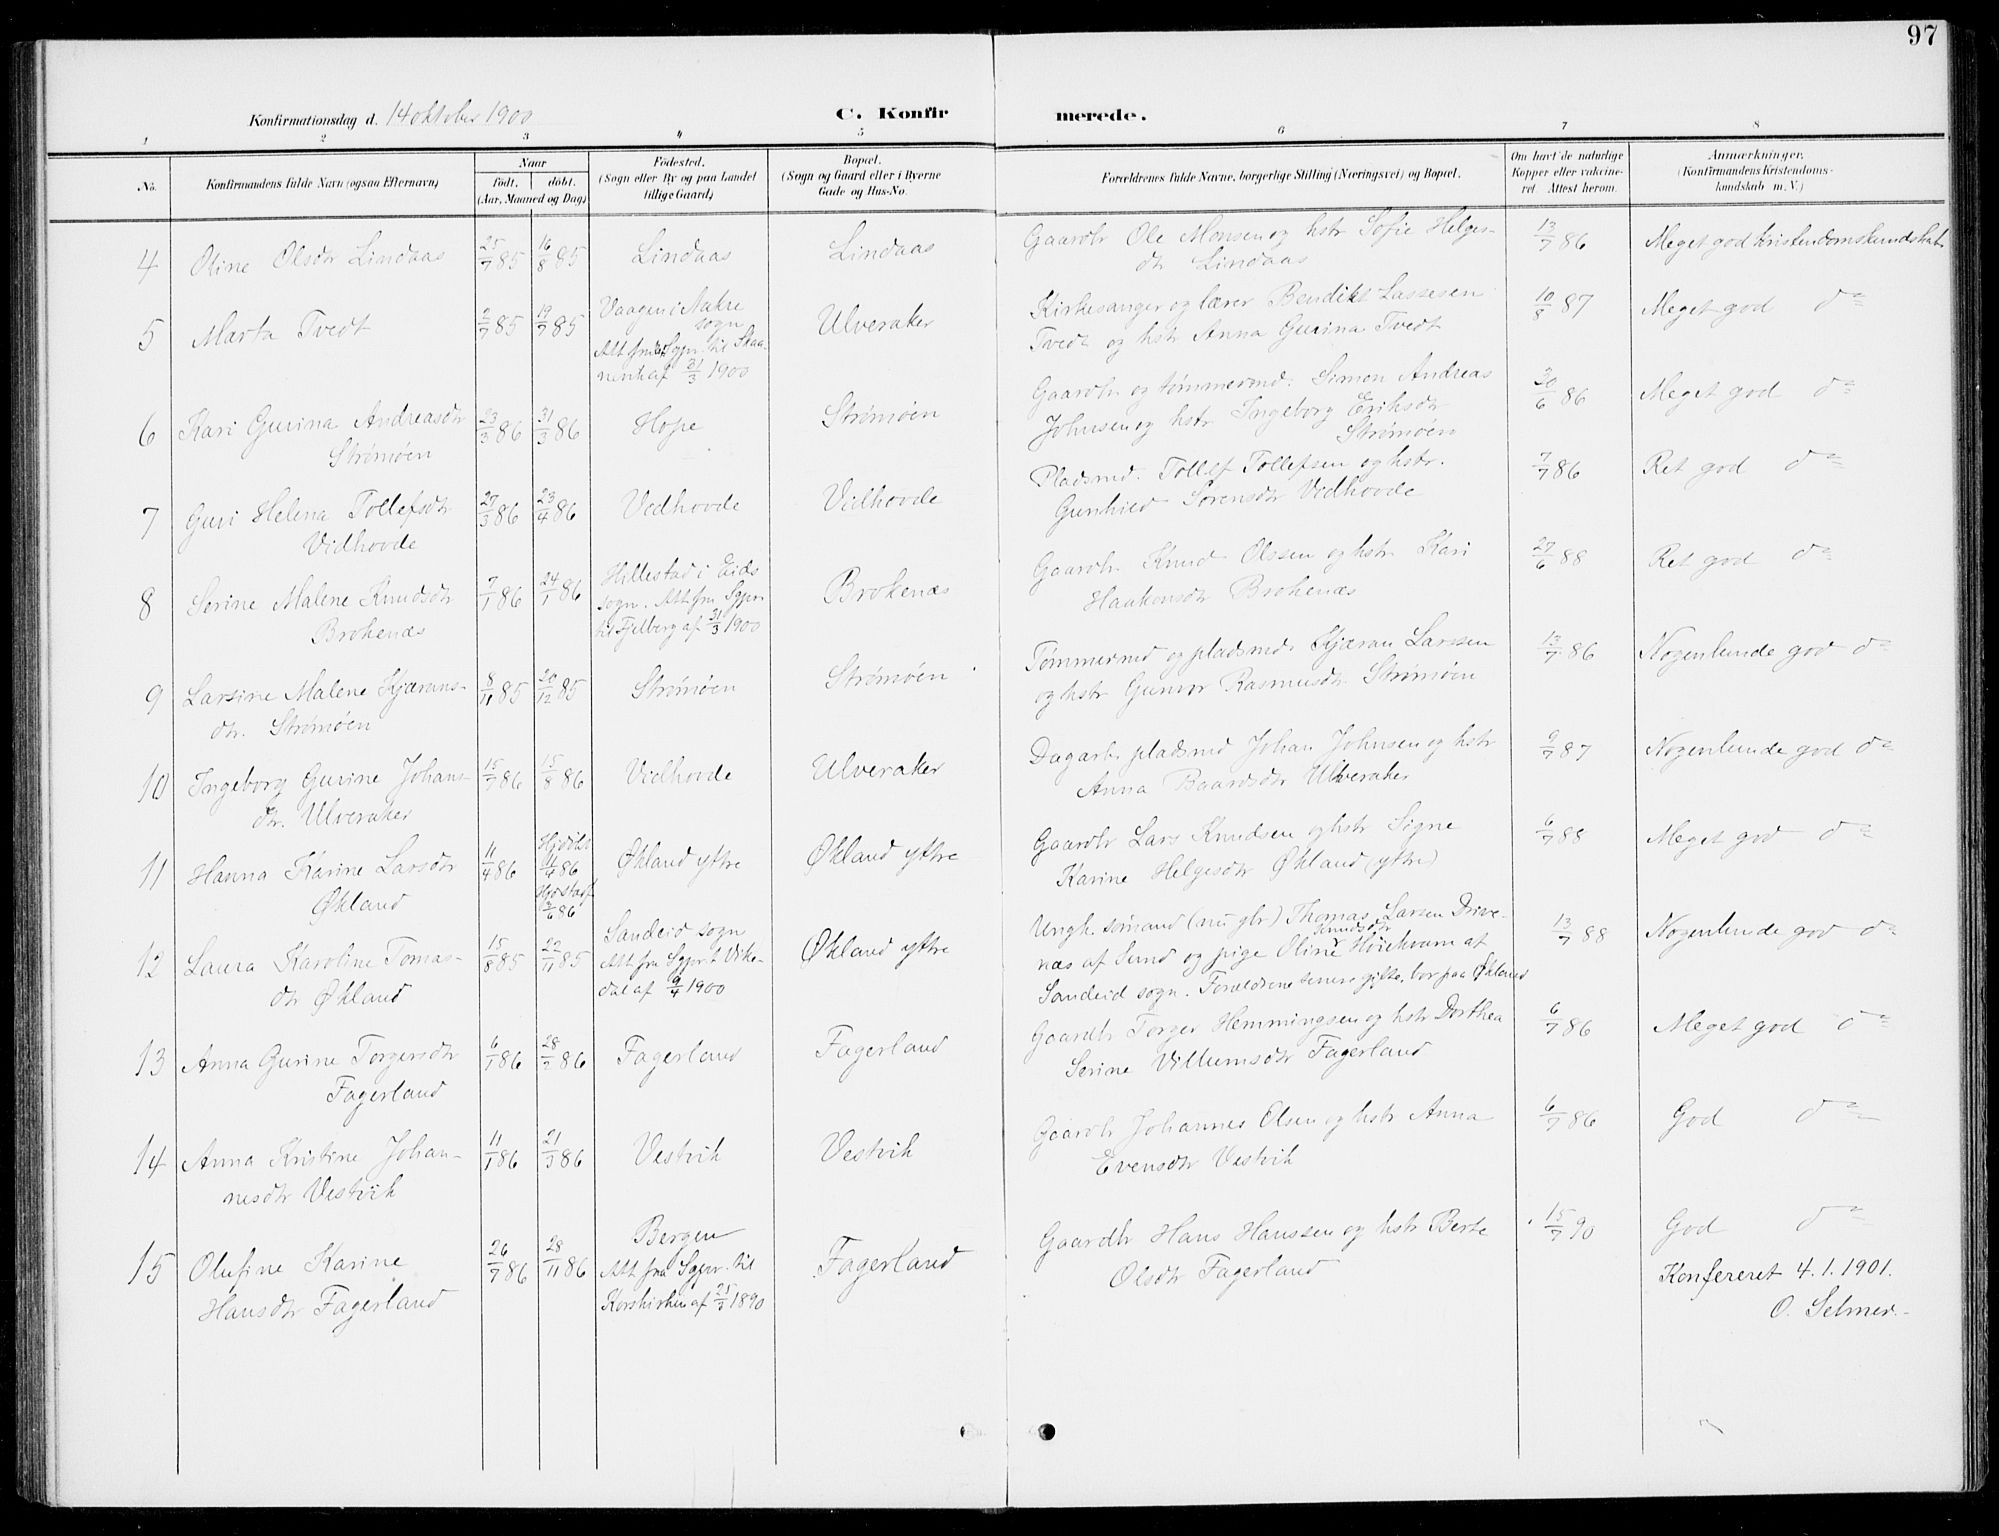 97
Konfirmationsdag d. 14 oktober 1900
C. Konfirmerede.
1 2 3 4 5 6 7 8
No.
Konfirmandens fulde Navn (ogsaa Efternavn)
Naar
født. døbt.
(Aar, Maaned og Dag)
Fødested.
(Sogn eller By og paa Landet
tillige Gaard)
Bopæl.
(Sogn og Gaard eller i Byerne
Gade og Hus-No.
Forældrenes fulde Navne, borgerlige Stilling (Næringsvei) og Bopæl.
Om havt de naturlige
Kopper eller vakcine-
ret. Attest herom.
Anmærkninger.
(Konfirmandens Kristendoms-
kundskab m. V.)
4 Oline Olsdtr Lindaas 25/7 85 16/8 85 Lindaas Lindaas Gaardbr Ole Monsen og hstr Sofie Helges- 13/7 86 Meget god kristendomskundskab
dtr Lindaas
5 Marta Tvedt 2/7 85 19/7 85 Vaagen i Nakre Ulveraker Kirkesanger og lærer Bendikt Lassesen 10/8 87 Meget god do
sogn
Att fra Sgpr. til Skaa-
nevik af 31/3 1900
Tvedt og hstr Anna Gurina Tvedt
6 Kari Gurina Andreasdtr 23/3 86 31/3 86 Hope Strømøen Gaardbr og tømmermd. Simon Andreas 30/6 86 Meget god do
Strømøen
Johnsen og hstr Ingeborg Eriksdtr
Strømøen
7 Guri Helena Tollefsdtr 27/3 86 23/4 86 Vidhovde Vidhovde Pladsmd. Tollef Tollefsen og hstr. 7/7 86 Ret god do
Vidhovde
Gunhild Sørensdtr Vidhovde
8 Serine Malene Knudsdtr 7/1 86 24/1 86 Hillestad i Eids Brokenæs Gaardbr. Knud Olssen og hstr Kari 27/6 88 Ret god do
Brokenæs
sogn. Att fra Sgpr.
til Fjelberg af 31/3 1900
Haakonsdtr Brokenæs
9 Larsine Malene Kjærans- 8/11 85 20/12 85 Strømøen Strømøen Tømmermd og pladsmd. Kjæran Larssen 13/7 86 Nogenlunde god do
dtr. Strømøen
og hstr Gunvor Rasmusdtr Strømøen
10 Ingeborg Gurine Johans- 15/7 86 15/8 86 Vidhovde Ulveraker Dagarb. pladsmd Johan Johnsen og hstr 9/7 87 Nogenlunde god do
dtr. Ulveraker
Anna Baardsdtr Ulveraker
11 Hanna Karine Larsdtr 11/4 86 Hjdøbt 11/4 86 Økland yttre Økland yttre Gaardbr Lars Knudsen og hstr Signe 6/7 88 Meget god do
Økland
Karine Helgesdtr Økland (yttre)
12 Laura Karoline Tomas- 15/8 85 22/11 85 Sandeid sogn Økland yttre Ungk. sømand (nu gbr) Thomas Larsen Drive- 13/7 88 Nogenlunde god do
dtr Økland
Att fra Sgpr. t. Vike-
dal af 9/4 1900
Knudsdtr
næs af Sund og pige Oline Høiekvam af
Sandeid sogn. Forældrene senere gifte, bor paa Økland
13 Anna Gurine Torgersdtr 6/1 86 28/2 86 Fagerland Fagerland Gaardbr Torger Hemmingsen og hstr Dorthea 6/7 86 Meget god do
Fagerland
Serine Villumsdtr Fagerland
14 Anna Kristine Johan- 11/1 86 21/3 86 Vestvik Vestvik Gaardbr Johannes Olsen og hstr Anna 6/7 86 God do
nesdtr Vestvik
Evensdtr Vestvik
15 Olufine Karine 26/7 86 28/11 86 Bergen Fagerland Gaardbr Hans Hanssen og hstr Berte 15/7 90 God do
Hansdtr Fagerland
Att fra Sgpr. til
Korskirken af 25/3 1890
Olsdtr Fagerland
Konfereret 4.1.1901.
O. Selmer.